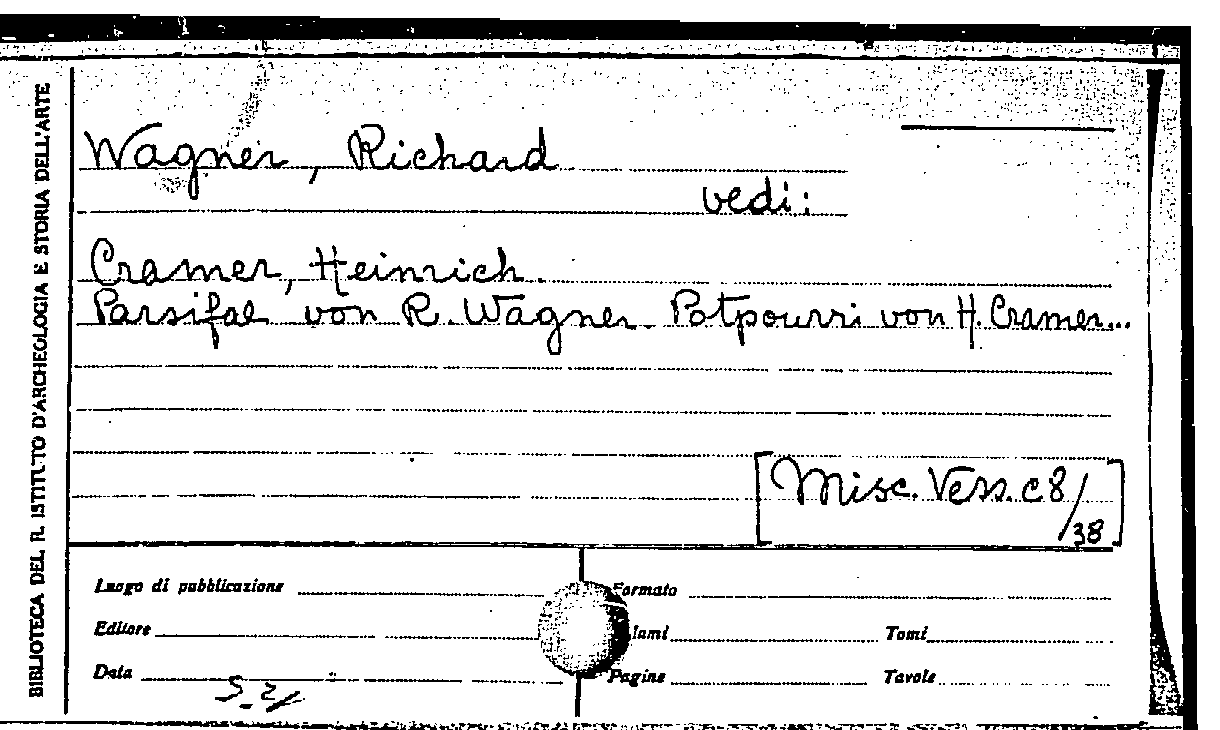 BIBLIOTECA DEL R. ISTITUTO D'ARCHEOLOGIA E STORIA DELL'ARTE
Wagner, Richard
vedi:
Cramer, Heinrich.
Parsifal von R. Wagner. Potpourri von H. Cramer...
[Misc. Vess. c8/38]
Luogo di pubblicazione
Formato
Editore
Tomi
Data
Pagine
Tavole